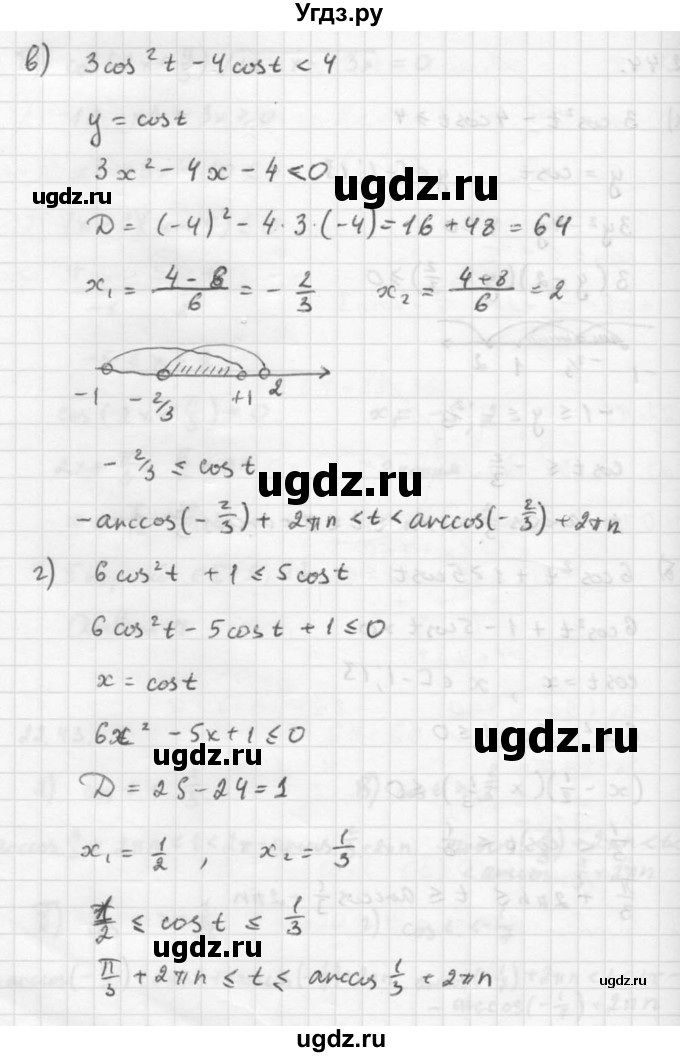 Угдз.ру
в) 3cos²t - 4cost < 4
y = cost
3x² - 4x - 4 < 0
угдз.ru
угдз.ru
D = (-4)² - 4·3·(-4) = 16 + 48 = 64
x₁ = (4 - 8)/6 = - 2/3 x₂ = (4+8)/6 = 2
-1 - 2/3 +1 2
- 2/3 ≤ cost
угдз.ru
-arccos(- 2/3) + 2πn < t < arccos(- 2/3) + 2πn
г) 6cos²t + 1 ≤ 5cost
6cos²t - 5cost + 1 ≤ 0
x = cost
6x² - 5x + 1 ≤ 0
угдз.ru
угдз.ru
D = 25 - 24 = 1
x₁ = 1/2 , x₂ = 1/3
1/2 ≤ cost ≤ 1/3
угдз.ru
π/3 + 2πn ≤ t ≤ arccos 1/3 + 2πn
угдз.ru
угдз.ru